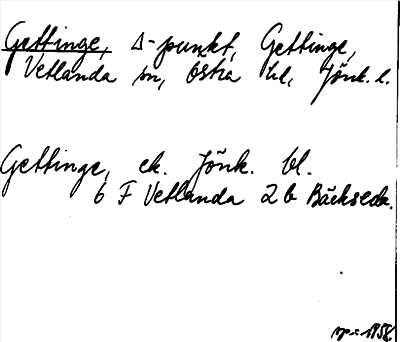 Gettinge, Δ-punkt, Gettinge,
Vetlanda sn, Östra hd, Jönk. l.
Gettinge, ek. Jönk. bl.
6 F Vetlanda 2 b Bäckseda.
1958